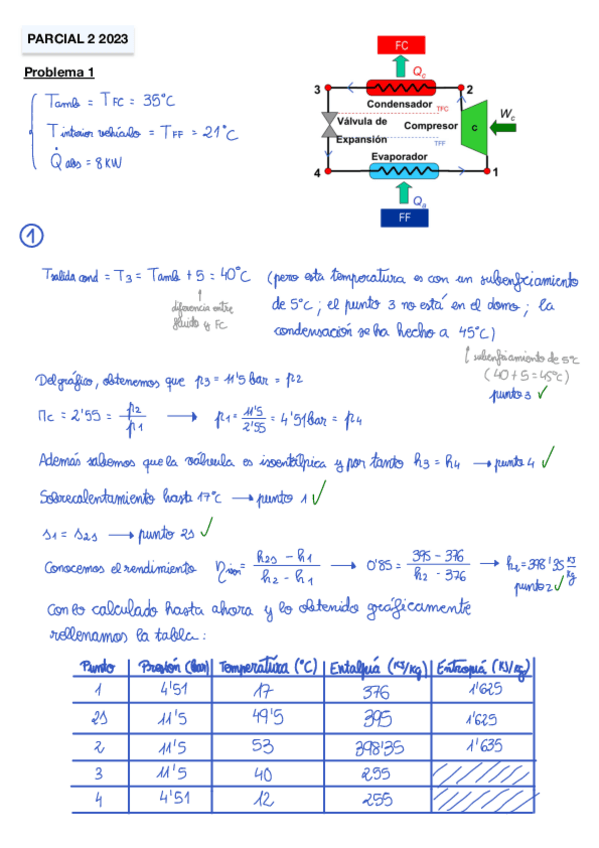 PARCIAL 2 2023
Problema 1
Tamb = TFC = 35°C
Tinterior vehículo = TFF = 21°C
Q̇abs = 8 KW
FC
Qc
3
2
Condensador
TFC
Wc
Válvula de
Expansión
Compresor
C
TFF
Evaporador
4
1
Qa
FF
1
Tsalida cond = T3 = Tamb + 5 = 40°C (pero esta temperatura es con un subenfriamiento
↑
diferencia entre
fluido y FC
de 5°C; el punto 3 no está en el domo; la
condensación se ha hecho a 45°C)
↑ subenfriamiento de 5°C
(40+5=45°C)
punto 3 ✓
Del gráfico, obtenemos que p3 = 11'5 bar = p2
Πc = 2'55 = p2/p1 → p1 = 11'5/2'55 = 4'51 bar = p4
Además sabemos que la válvula es isoentálpica y por tanto h3 = h4 → punto 4 ✓
Sobrecalentamiento hasta 17°C → punto 1 ✓
s1 = s2s → punto 2s ✓
Conocemos el rendimiento ηiso = (h2s - h1)/(h2 - h1) → 0'85 = (395 - 376)/(h2 - 376) → h2 = 398'35 KJ/Kg
punto 2 ✓
Con lo calculado hasta ahora y lo obtenido gráficamente
rellenamos la tabla:
Punto Presión (bar) Temperatura (°C) Entalpía (KJ/kg) Entropía (KJ/kg)
1 4'51 17 376 1'625
2s 11'5 49'5 395 1'625
2 11'5 53 398'35 1'635
3 11'5 40 255
4 4'51 12 255